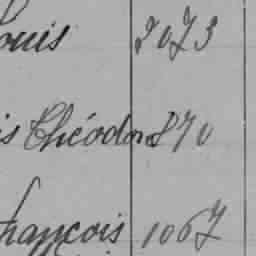 ouis 2073
is Théodore 870
françois 1067